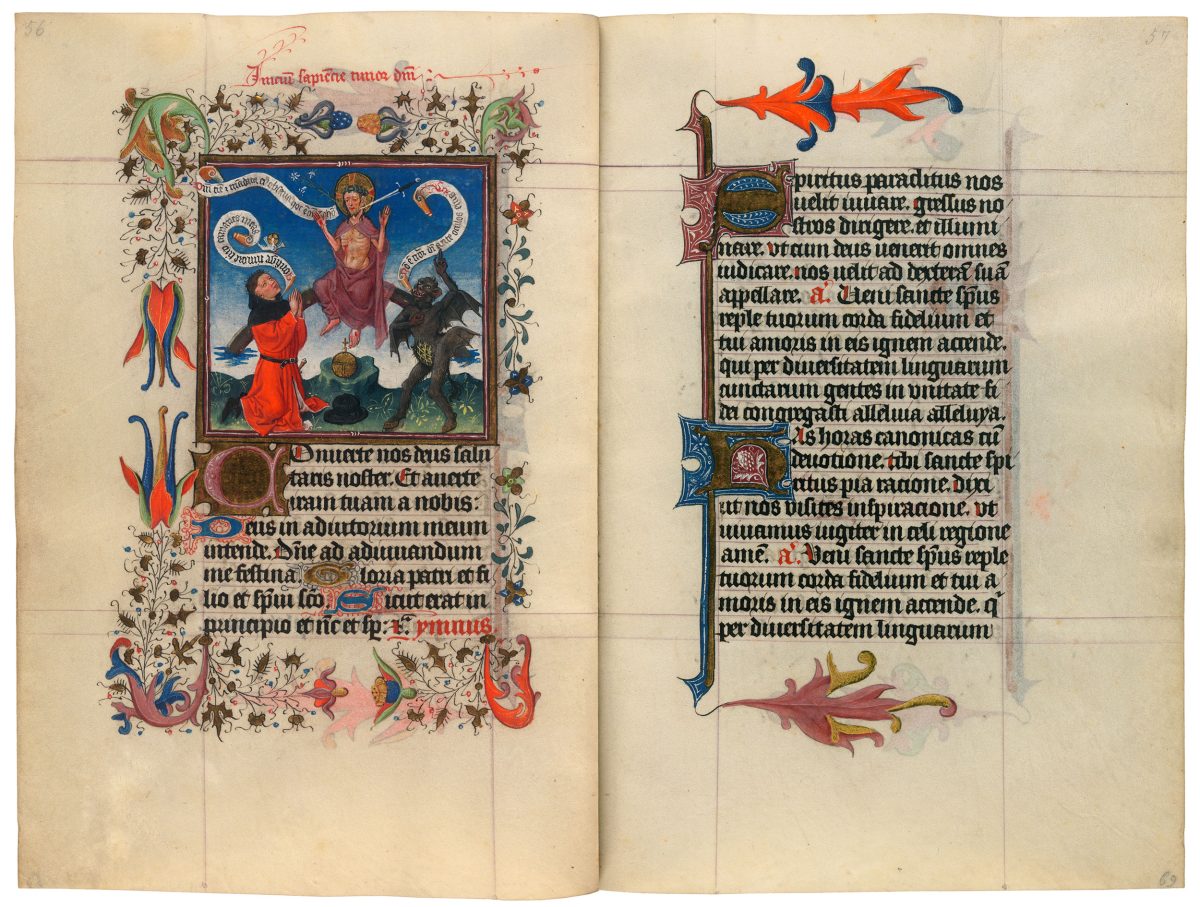 56
Iniciu sapiecie timor dm
Onuerte nos deus salu
taris noster. Et auerte
iram tuam a nobis:
Deus in adiutorium meum
intende. Dne ad adiuuandum
me festina Gloria patri et fi
lio et spui sco Sicut erat in
principio et nc et sp: ymnus.
57
Spiritus paraclitus nos
uelit iuuare. gressus no
stros dirigere. et illumi
nare. vt cum deus uenerit omnes
iudicare. nos uelit ad dexteram suam
appellare. a Ueni sancte spus
reple tuorum corda fidelium et
tui amoris in eis ignem accende.
qui per diuersitatem linguarum
cunctarum gentes in vnitate fi
dei congregasti alleluia alleluya.
Has horas canonicas cu
deuotione. tibi sancte spi
ritus pia racione. dixi
ut nos visites inspiracione. vt
viuamus iugiter in celi regione
ame. a Veni sancte spus reple
tuorum corda fidelium et tui a
moris in eis ignem accende. q
per diuersitatem linguarum
69